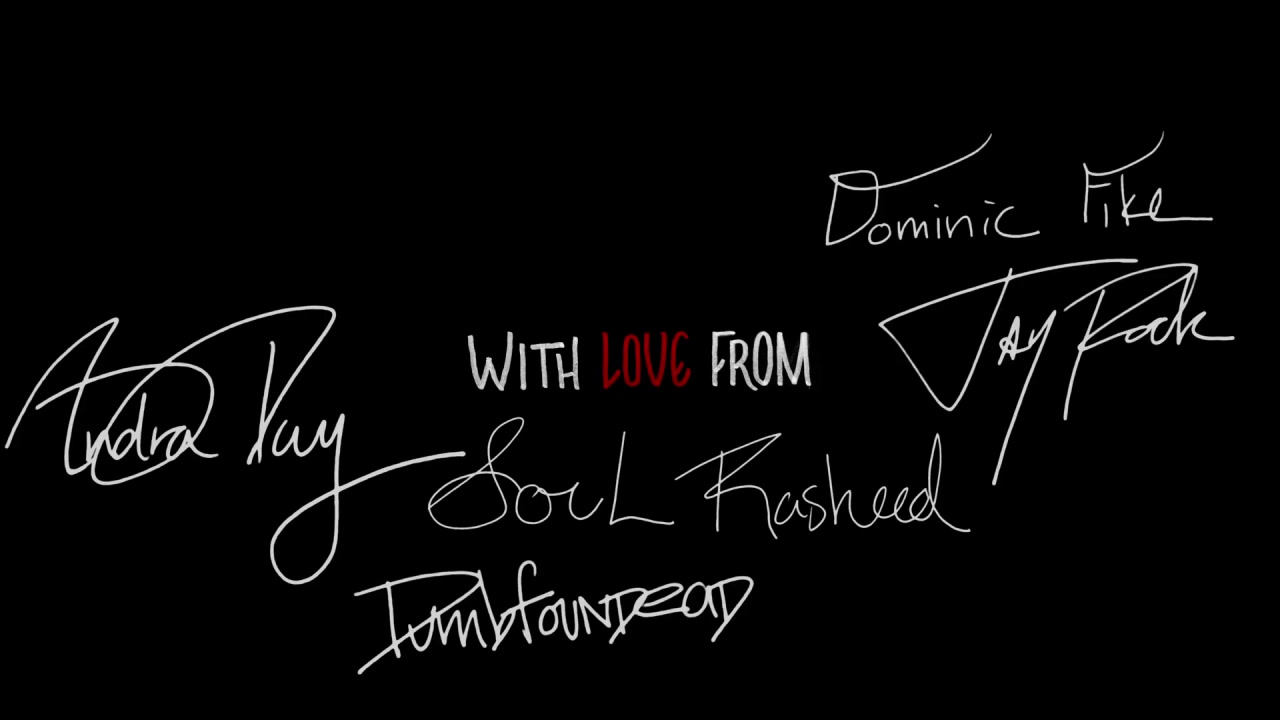 Dominic Fike
Jay Rock
WITH LOVE FROM
Andra Day
Soul Rasheed
DumbfounDeaD